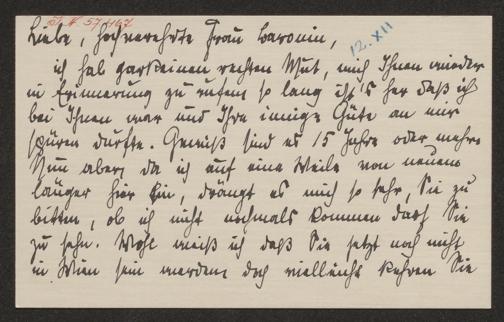 I. N. 57.467
12. XII
Liebe, hochverehrte Frau Baronin,
ich hab garkeinen rechten Mut, mich Ihnen wieder
in Erinnerung zu rufen, so lang ist's her daß ich
bei Ihnen war und Ihre innige Güte an mir
spüren durfte. Gewiß sind es 15 Jahre oder mehr.
Nun aber, da ich auf eine Weile von neuem
länger hier bin, drängt es mich so sehr, Sie zu
bitten, ob ich nicht nochmals kommen darf Sie
zu sehn. Wohl weiß ich daß Sie jetzt noch nicht
in Wien sein werden, doch vielleicht kehren Sie